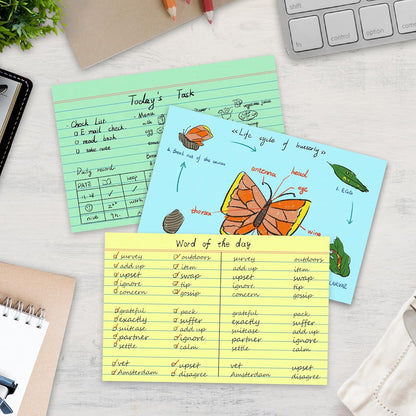 control
option
Today's Task
Check List
E mail check
read book
take note
Daily record
DATE
nice
Month
with
egg
<<Life cycle of butterfly>>
antenna
head
eye
thorax
wing
1. EGG
4. Break out of the cocoon
LARVAE
Word of the day
survey outdoors survey outdoors
add up item add up item
upset swap upset swap
ignore tip ignore tip
concern gossip concern gossip
grateful pack grateful pack
exactly suffer exactly suffer
suitcase add up suitcase add up
partner ignore partner ignore
settle calm settle calm
vet upset vet upset
Amsterdam disagree Amsterdam disagree